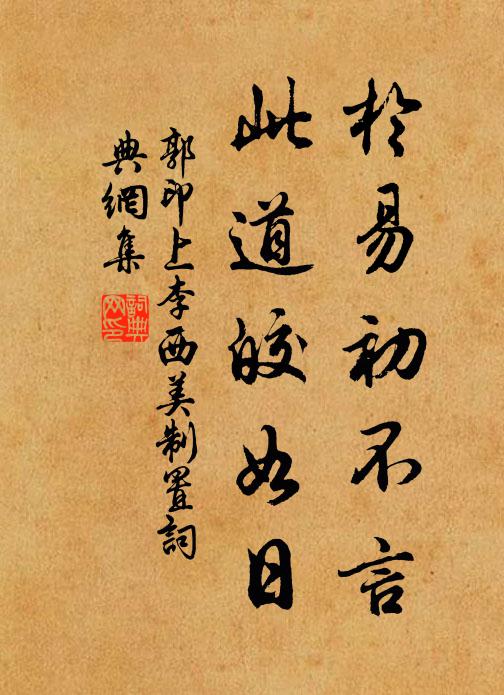 於易初不言
此道皎如日
郭印上李西美制置詞
典網集
詞典網印